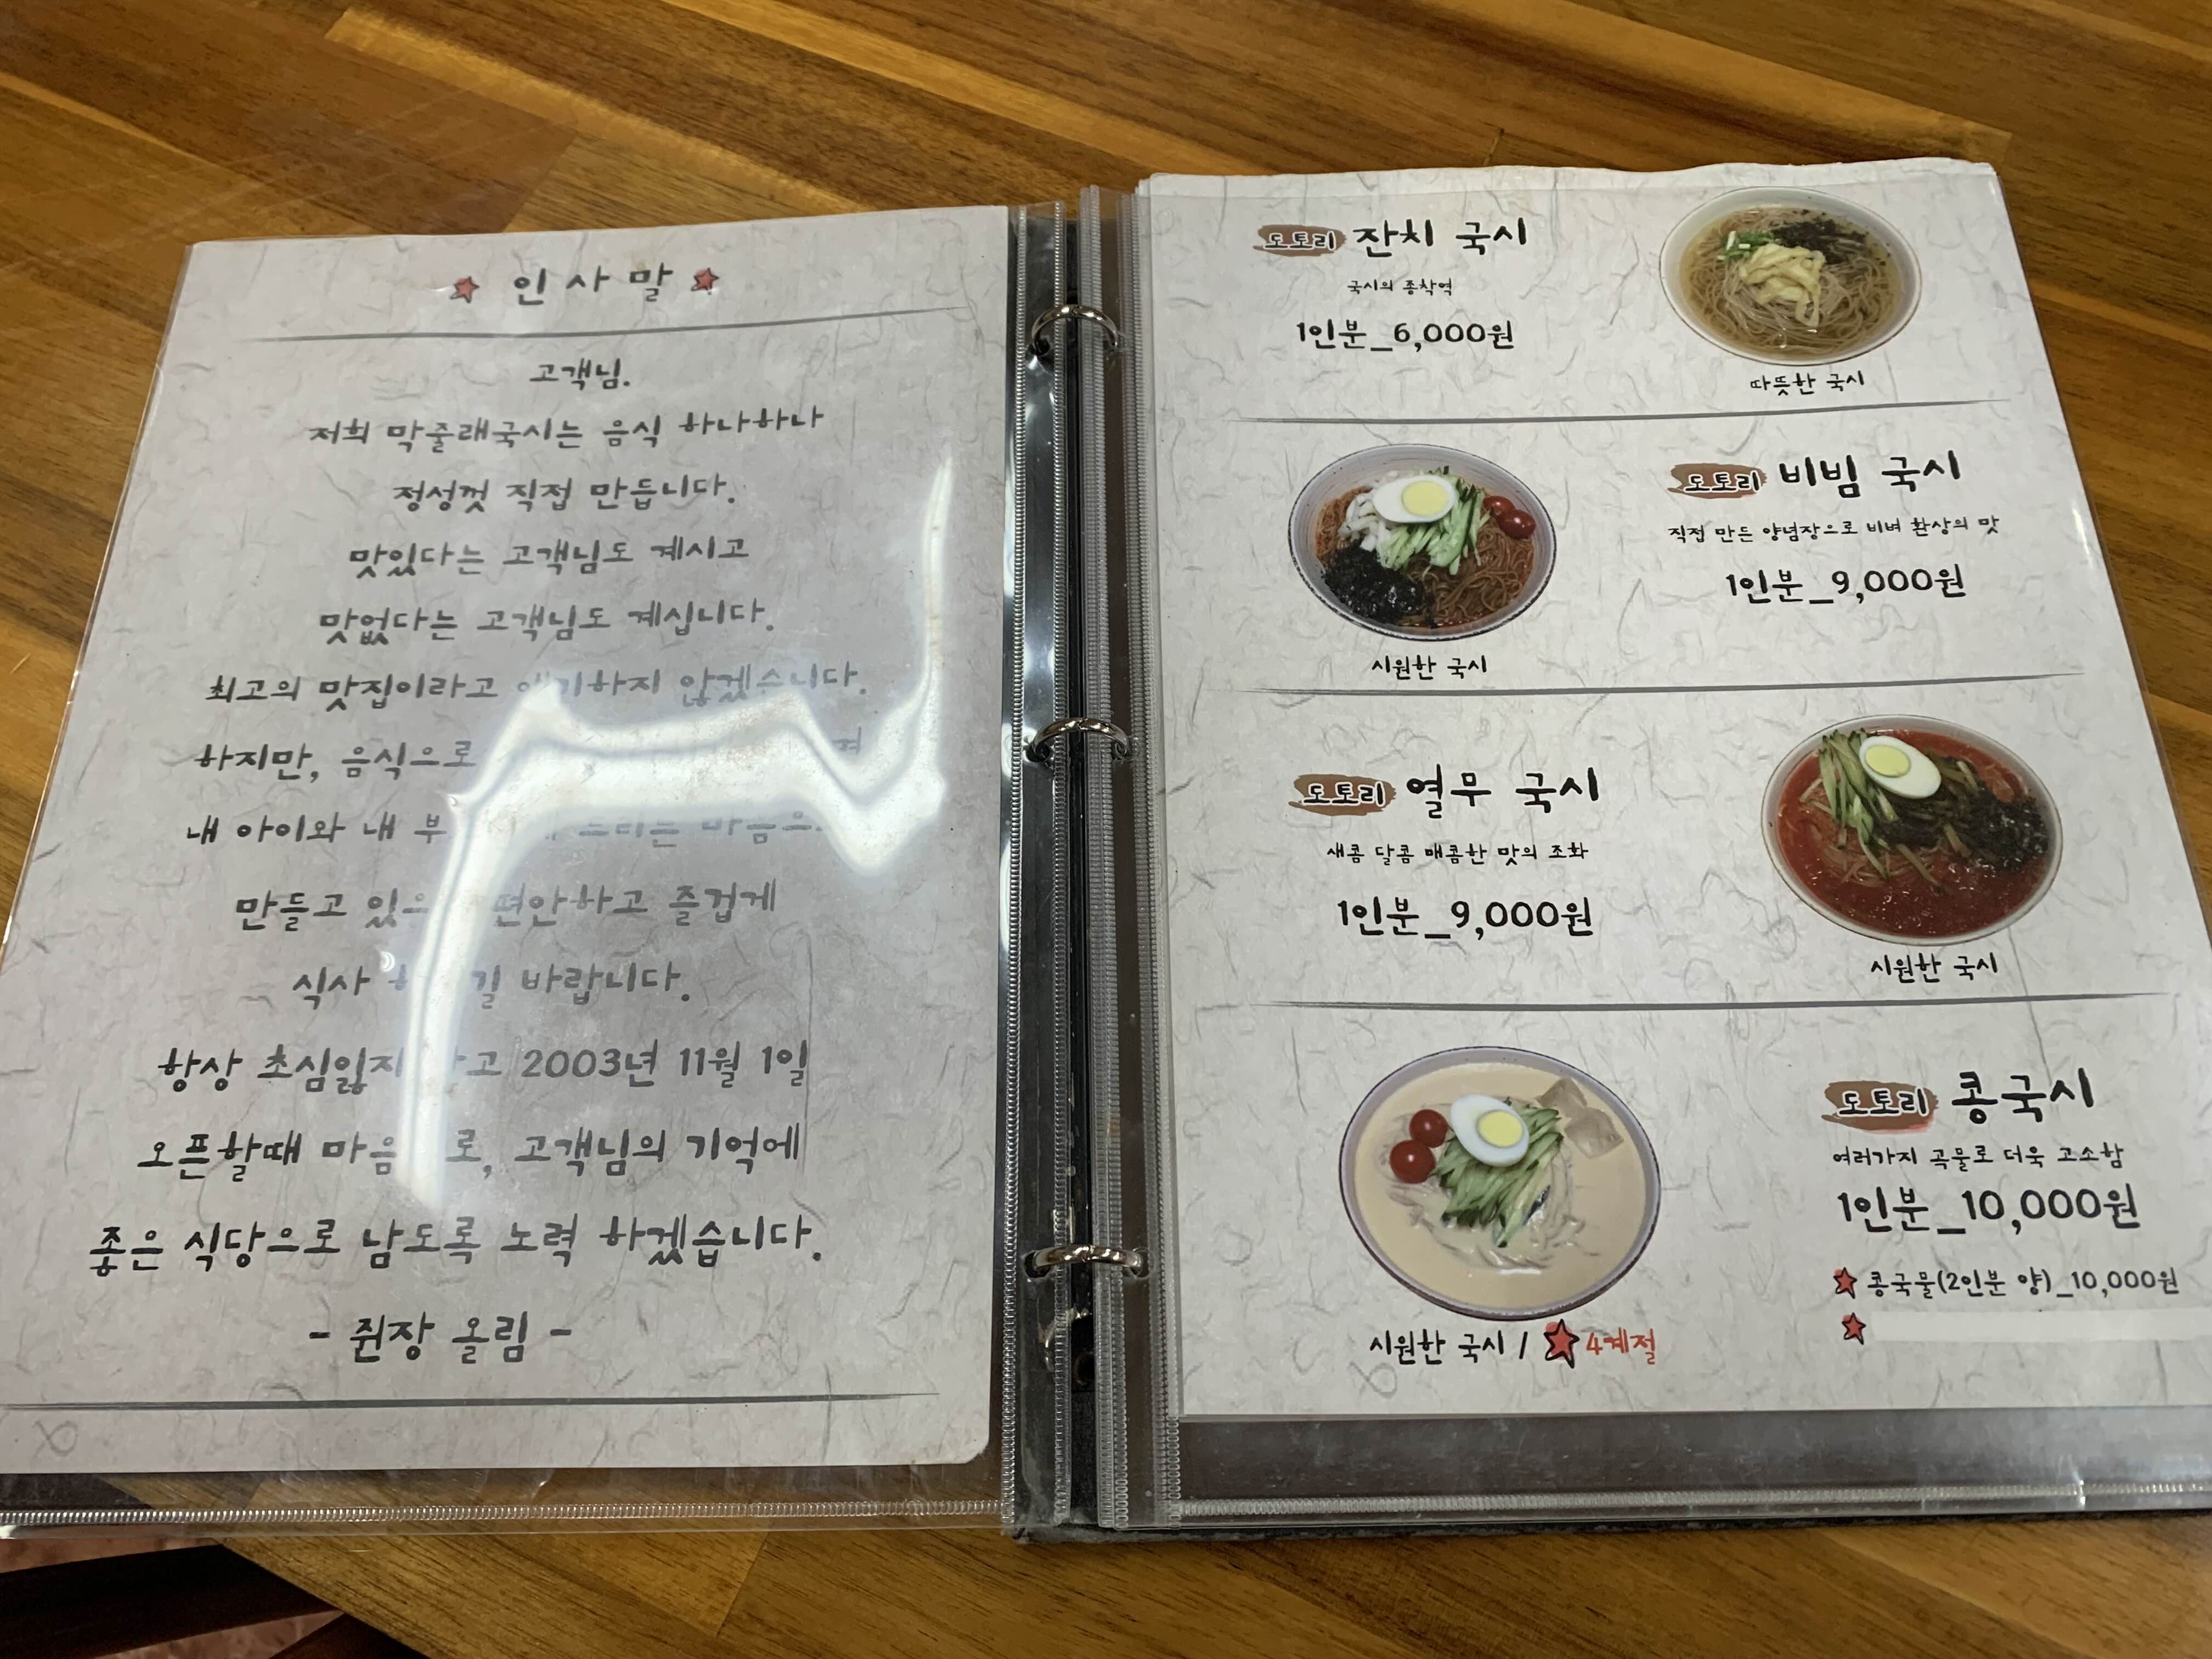 인사말
고객님.
저희 막줄래국시는 음식 하나하나
정성껏 직접 만듭니다.
맛있다는 고객님도 계시고
맛없다는 고객님도 계십니다.
최고의 맛집이라고 얘기하지 않겠습니다.
하지만, 음식으로
내 아이와 내 드리는 마음으로
만들고 편안하고 즐겁게
식사 바랍니다.
항상 초심잃지 않고 2003년 11월 1일
오픈할때 고객님의 기억에
좋은 식당으로 남도록 노력 하겠습니다.
- 쥔장 올림 -
도토리 잔치 국시
국시의 종착역
1인분_6,000원
따뜻한 국시
도토리 비빔 국시
직접 만든 양념장으로 비벼 환상의 맛
1인분_9,000원
시원한 국시
도토리 열무 국시
새콤 달콤 매콤한 맛의 조화
1인분_9,000원
시원한 국시
도토리 콩국시
여러가지 곡물로 더욱 고소함
1인분_10,000원
콩국물(2인분 양)_10,000원
시원한 국시 / 4계절